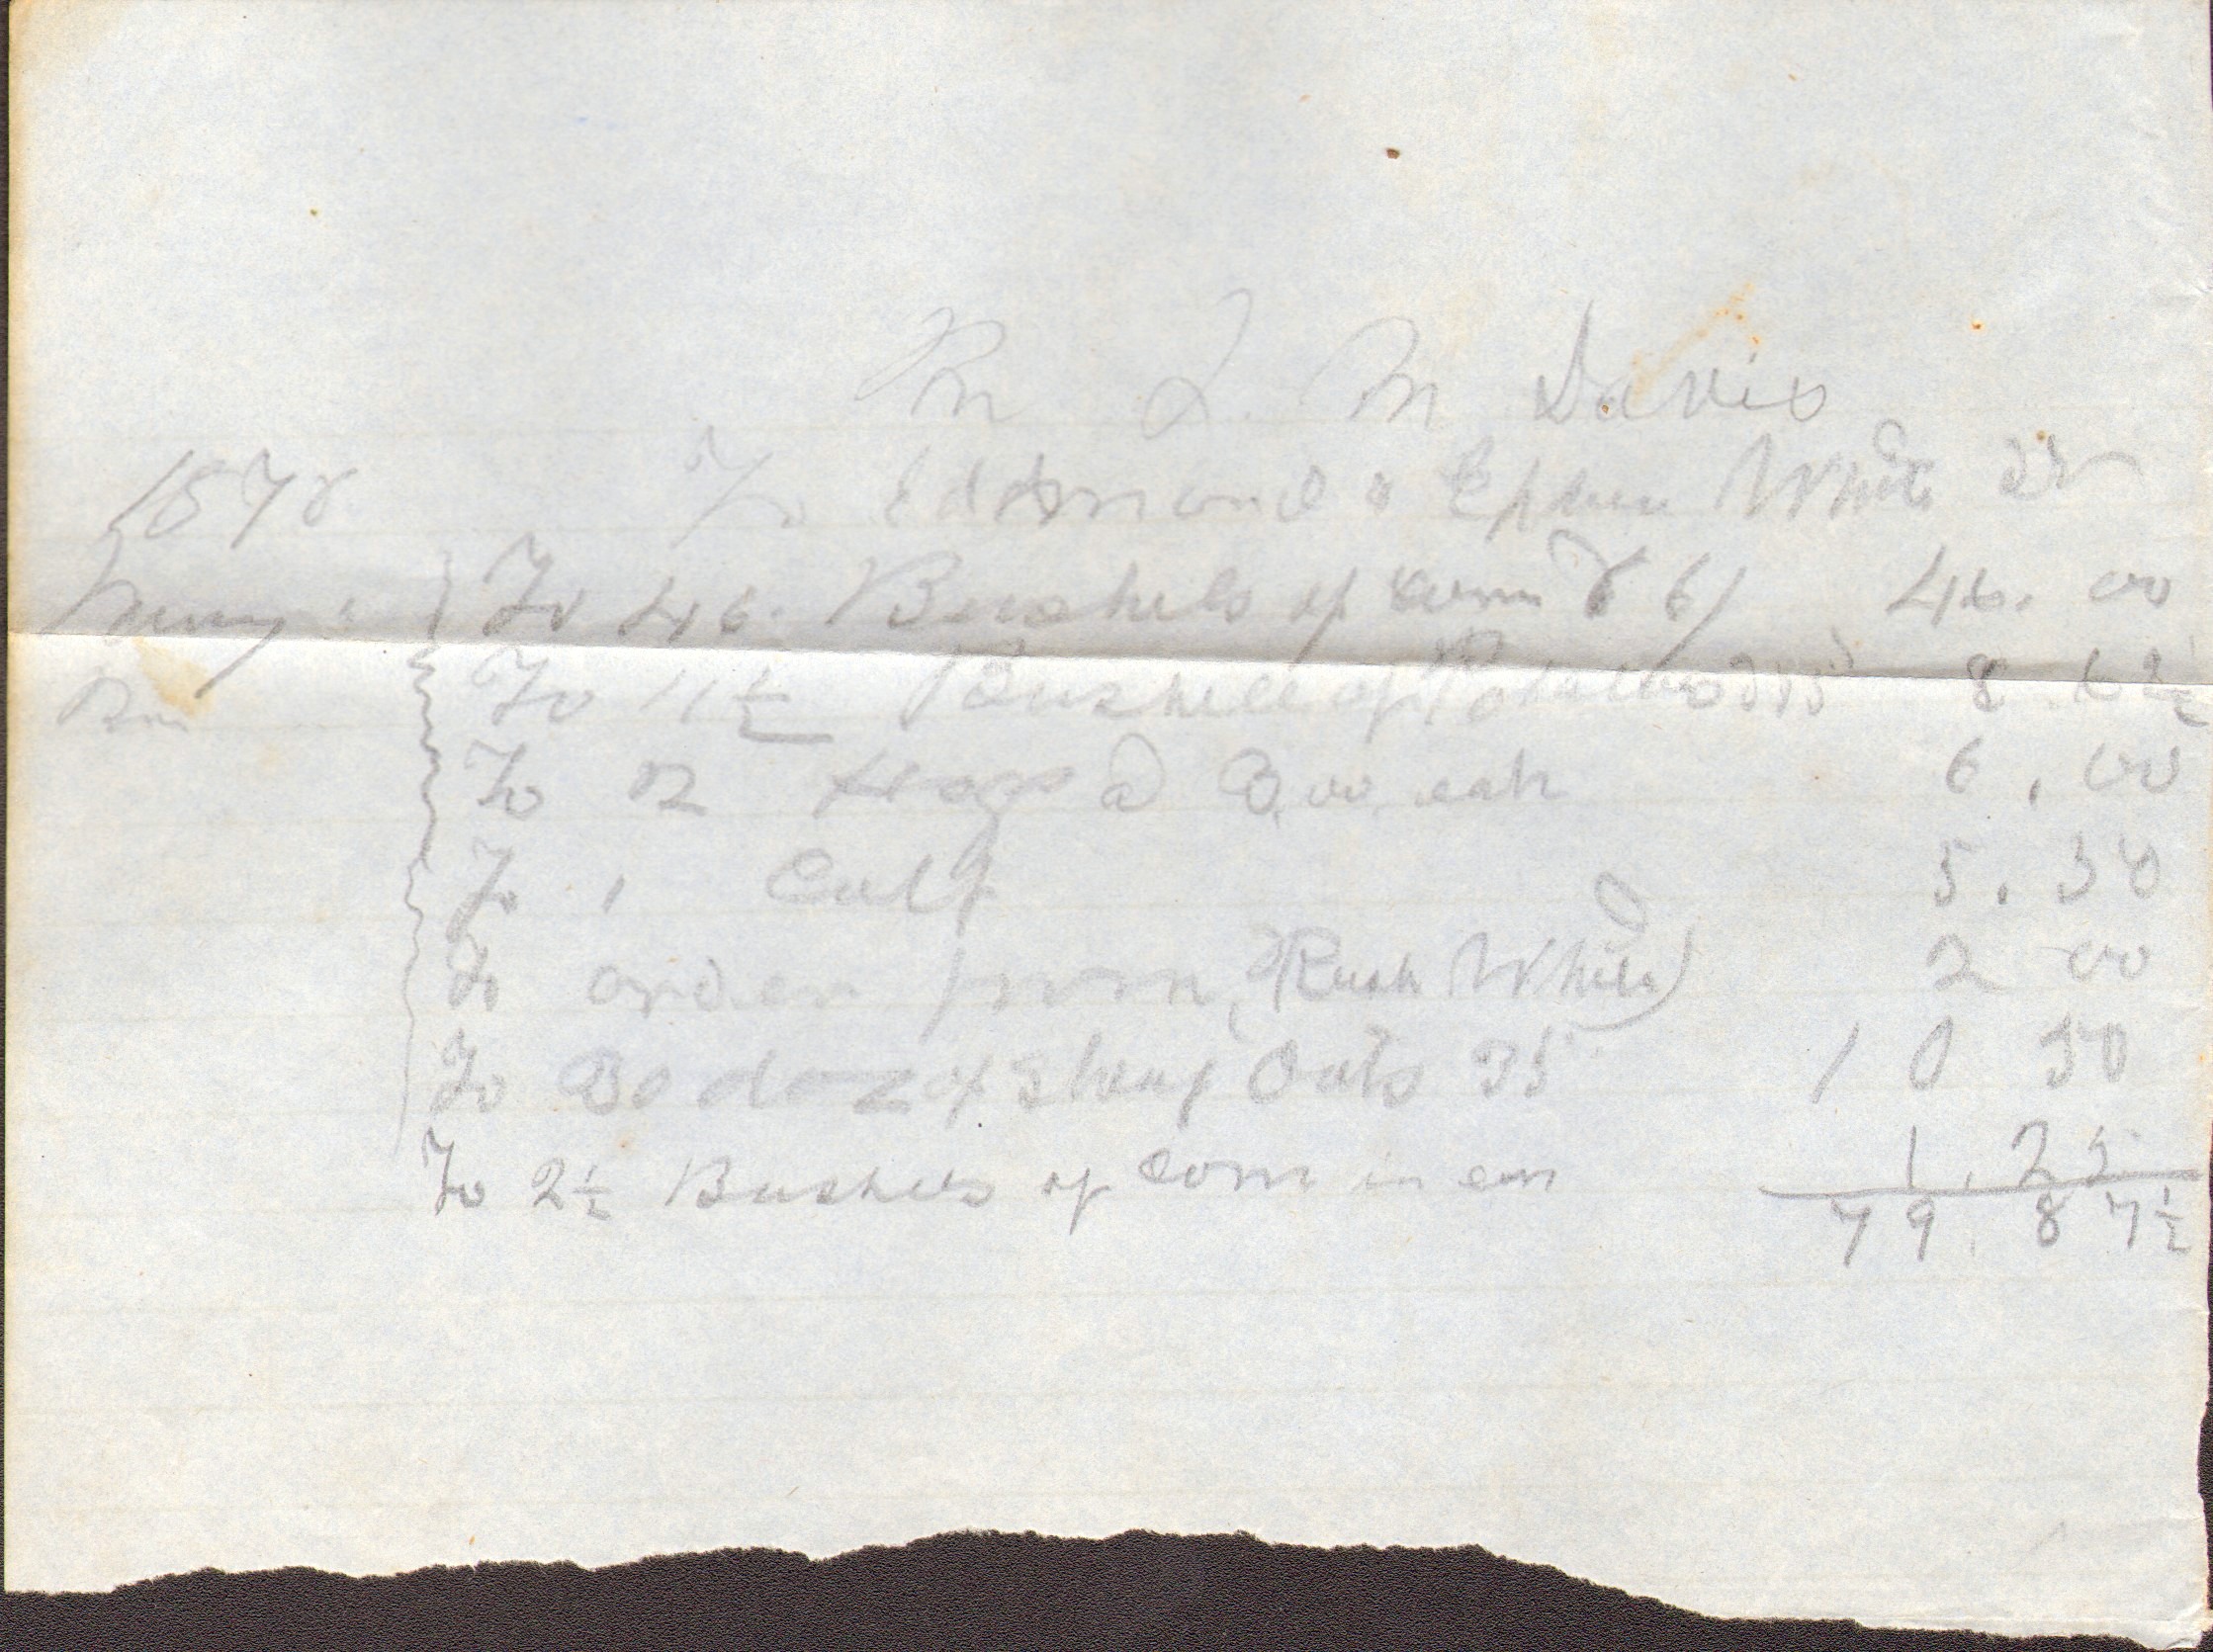 M L. M Davis
1878 To Edmond & Ephm White Dr
To 46 Bushels of corn 6/ 46. 00
To 11 1/2 Bushell of Potatoes 8 62 1/2
To 2 Hogs @ 3,00 eah 6. 00
To 1 Calf 5. 50
To order from (Rush White) 2 00
To 30 doz of Sheaf Oats 35 10 50
To 2 1/2 Bushels of corn in ear 1.25
79 87 1/2